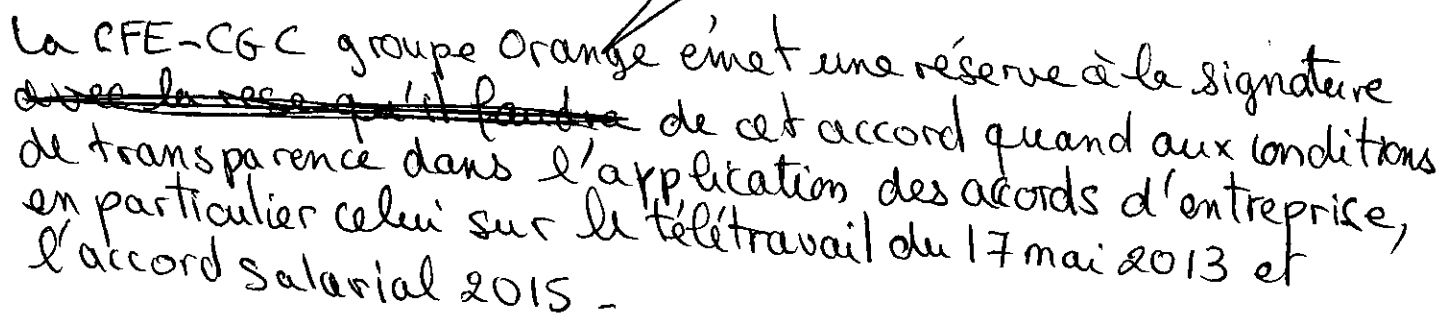 La CFE-CGC groupe Orange émet une réserve à la signature
avec la rese qu'il faudra de cet accord quand aux conditions
de transparence dans l'application des accords d'entreprise,
en particulier celui sur le télétravail du 17 mai 2013 et
l'accord salarial 2015 -